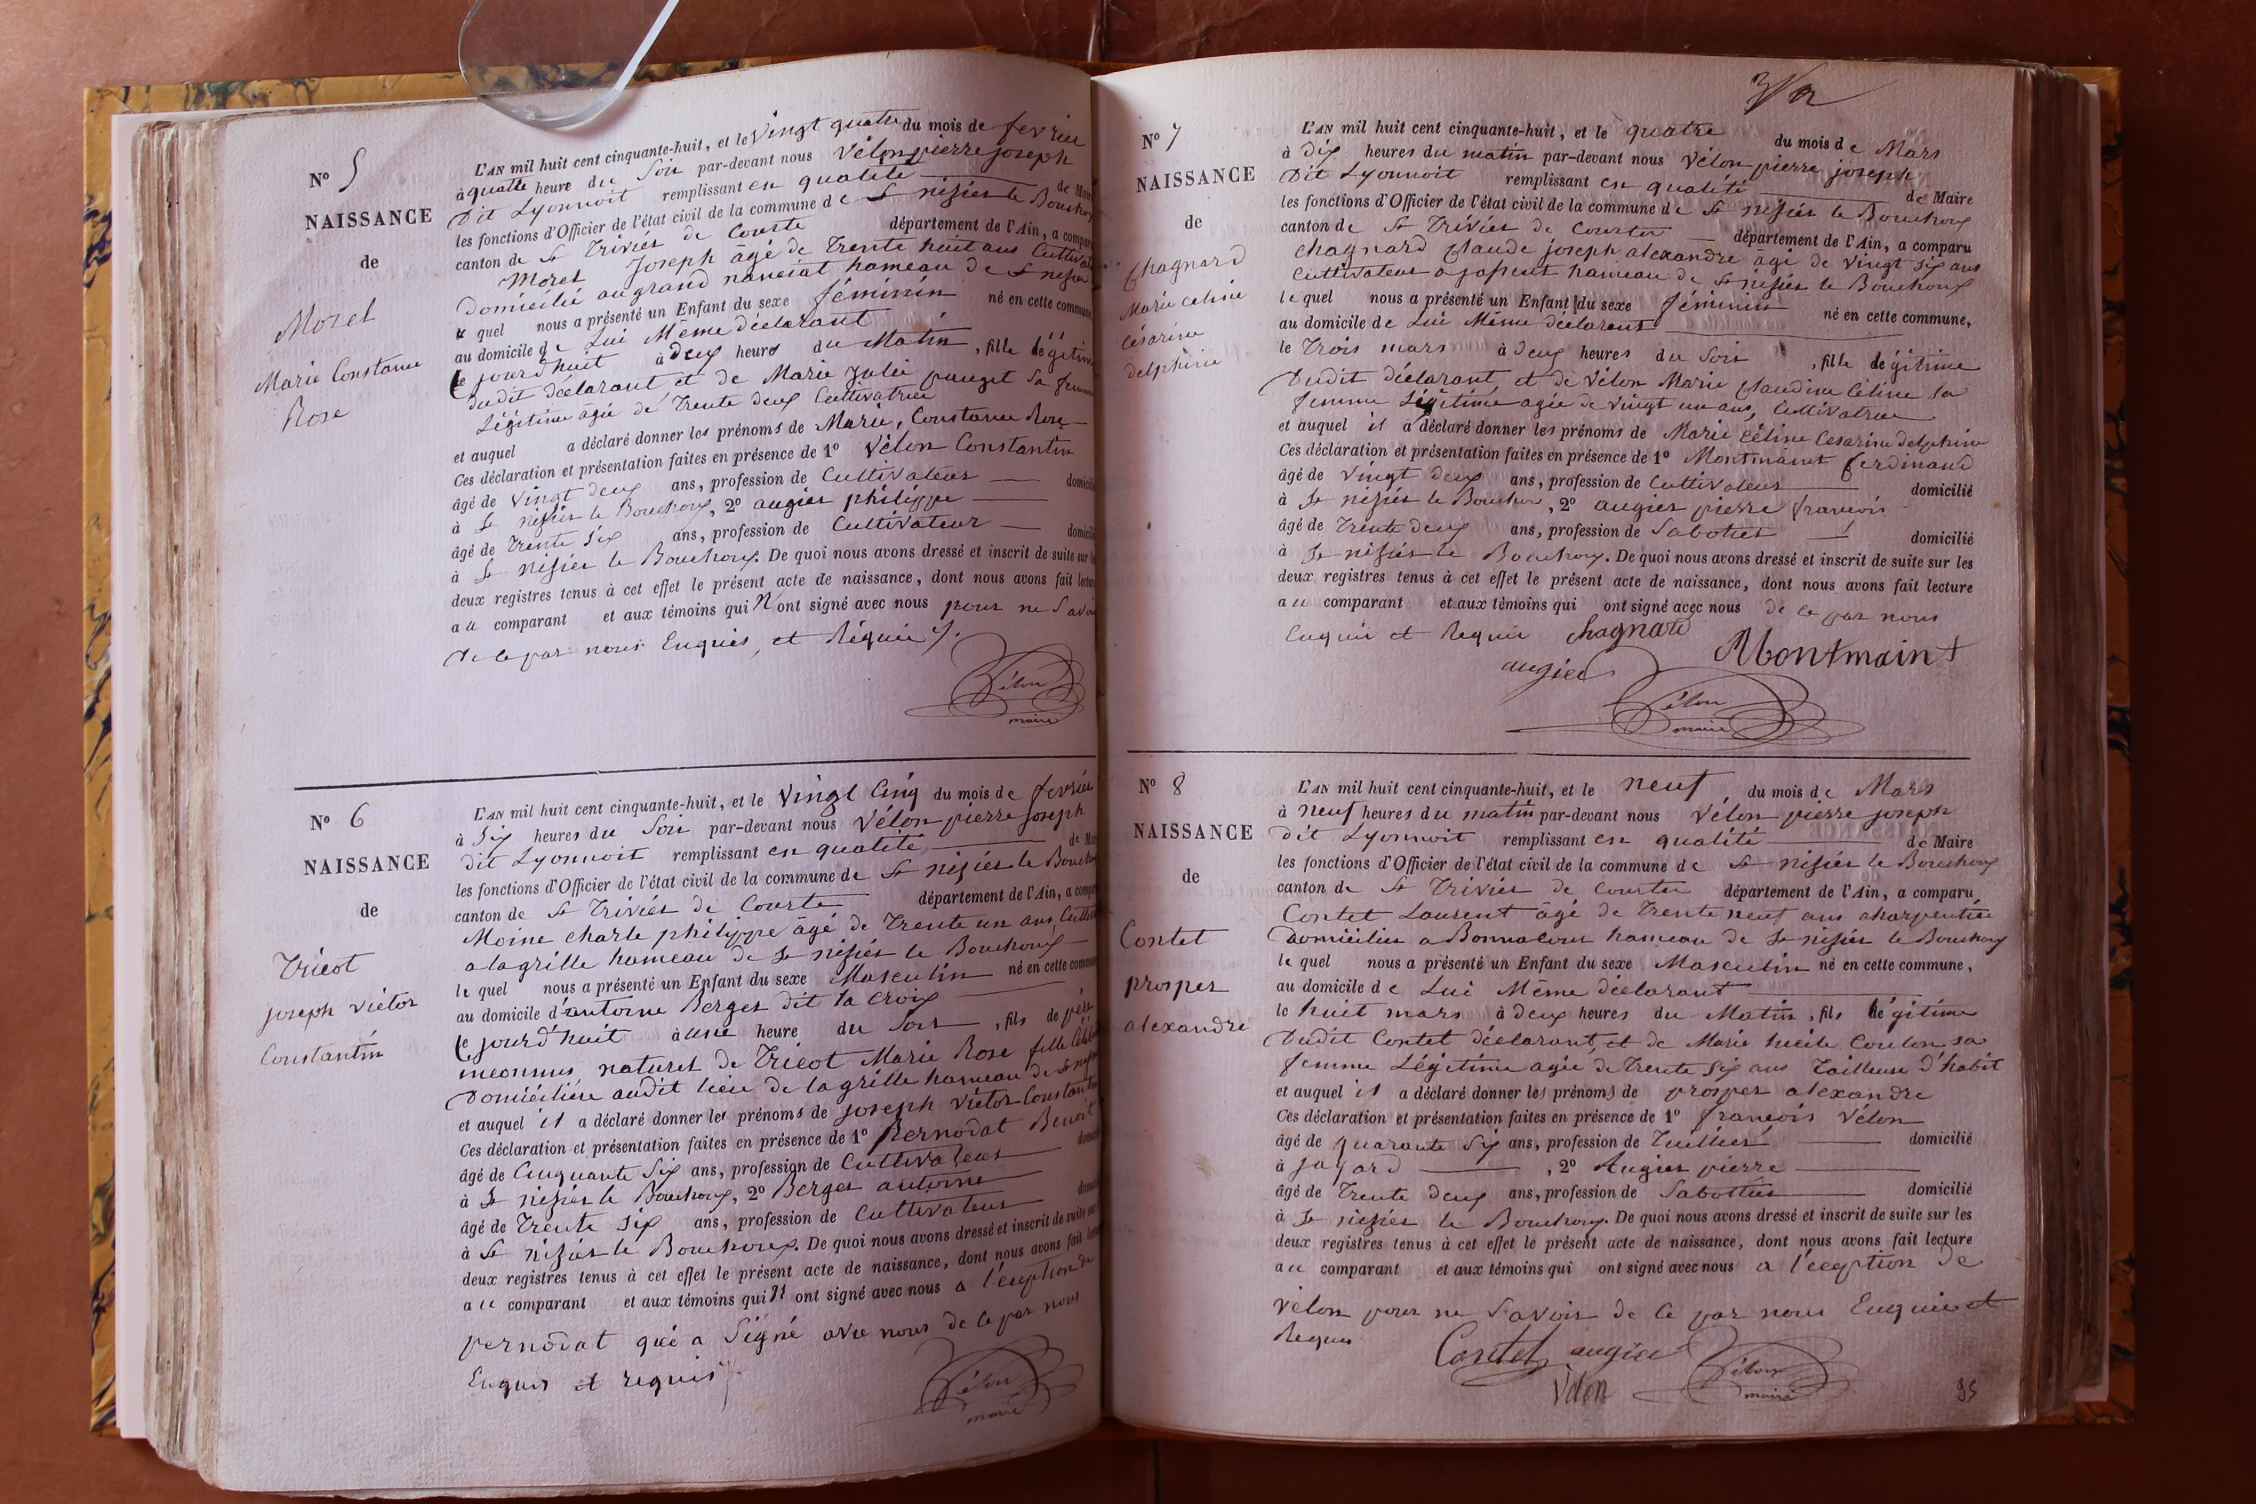 N° 5
NAISSANCE
de
Morel
Marie Constance
Rose
L'AN mil huit cent cinquante-huit, et le vingt quatre du mois de fevrier
à quatre heure du Soir par-devant nous Vélon pierre joseph
Dit Lyonnoit remplissant en qualité de Maire
les fonctions d'Officier de l'état civil de la commune de St nisier le Bouchoux
canton de St Trivier de Courte département de l'Ain, a comparu
Morel Joseph âgé de Trente huit ans Cultivateur
Domicilié au grand hameau de St nisier
le quel nous a présenté un Enfant du sexe féminin né en cette commune
au domicile de Lui Même déclarant
le jourd'huit à deux heures du Matin, fille légitime
du dit déclarant et de Marie Julie pauget Sa femme
Légitime âgée de Trente deux Cultivatrice
et auquel a déclaré donner les prénoms de Marie, Constance Rose
Ces déclaration et présentation faites en présence de 1° Vélon Constantin
âgé de vingt deux ans, profession de Cultivateur domicilié
à St nisier le Bouchoux, 2° augier philippe
âgé de Trente Six ans, profession de Cultivateur domicilié
à St nisier le Bouchoux. De quoi nous avons dressé et inscrit de suite sur les
deux registres tenus à cet effet le présent acte de naissance, dont nous avons fait lecture
au comparant et aux témoins qui N'ont signé avec nous pour ne Savoir
de ce par nous Enquis, et Réquis
Vélon
maire
N° 6
NAISSANCE
de
Tricot
joseph victor
Constantin
L'AN mil huit cent cinquante-huit, et le Vingt Cinq du mois de fevrier
à Six heures du Soir par-devant nous Vélon pierre joseph
dit Lyonnoit remplissant en qualité de Maire
les fonctions d'Officier de l'état civil de la commune de St nisier le Bouchoux
canton de St Trivier de Courte département de l'Ain, a comparu
Moine charle philippe âgé de Trente un ans Cultivateur
a la grille hameau de St nisier le Bouchoux
le quel nous a présenté un Enfant du sexe Masculin né en cette commune
au domicile d'antoine Berger dit la Croix
le jourd'huit à une heure du Soir, fils de père
inconnus naturel de Tricot Marie Rose fille Célibataire
Domiciliée audit lieu de la grille hameau de St nisier
et auquel il a déclaré donner les prénoms de joseph Victor Constantin
Ces déclaration et présentation faites en présence de 1° Pernodat Benoit
âgé de Cinquante Six ans, profession de Cultivateur domicilié
à St nisier le Bouchoux, 2° Berger antoine
âgé de Trente Six ans, profession de Cultivateur domicilié
à St nisier le Bouchoux. De quoi nous avons dressé et inscrit de suite sur les
deux registres tenus à cet effet le présent acte de naissance, dont nous avons fait lecture
au comparant et aux témoins qui N'ont signé avec nous a l'éception de
pernodat qui a Signé avec nous de ce par nous
Enquis et requis
Vélon
maire
N° 7
NAISSANCE
de
Chagnard
Marie celine
césarine
delphine
L'AN mil huit cent cinquante-huit, et le quatre du mois de Mars
à Dix heures du matin par-devant nous Vélon pierre joseph
Dit Lyonnoit remplissant en qualité de Maire
les fonctions d'Officier de l'état civil de la commune de St nisier le Bouchoux
canton de St Trivier de Courte département de l'Ain, a comparu
Chagnard Claude joseph alexandre âgé de Vingt Six ans
Cultivateur a hameau de St nisier le Bouchoux
le quel nous a présenté un Enfant du sexe féminin né en cette commune,
au domicile de Lui Même déclarant
le Trois mars à Deux heures du Soir, fille légitime
Dudit déclarant, et de Vélon Marie Claudine Céline sa
femme Légitime agée de vingt un ans, Cultivatrice
et auquel il a déclaré donner les prénoms de Marie céline Césarine Delphine
Ces déclaration et présentation faites en présence de 1° Montmaint ferdinand
âgé de vingt deux ans, profession de Cultivateur domicilié
à St nisier le Bouchoux, 2° augier pierre françois
âgé de Trente deux ans, profession de Sabotier domicilié
à St nisier le Bouchoux. De quoi nous avons dressé et inscrit de suite sur les
deux registres tenus à cet effet le présent acte de naissance, dont nous avons fait lecture
au comparant et aux témoins qui ont signé avec nous de ce par nous
Enquis et Requis Chagnard
Montmaint
augier
Vélon
maire
N° 8
NAISSANCE
de
Contet
prosper
alexandre
L'AN mil huit cent cinquante-huit, et le neuf du mois de Mars
à neuf heures du matin par-devant nous Vélon pierre joseph
Dit Lyonnoit remplissant en qualité de Maire
les fonctions d'Officier de l'état civil de la commune de St nisier le Bouchoux
canton de St Trivier de Courte département de l'Ain, a comparu
Contet Laurent âgé de Trente neuf ans charpentier
domicilier a Bonnacour hameau de St nisier le Bouchoux
le quel nous a présenté un Enfant du sexe Masculin né en cette commune,
au domicile de Lui Même déclarant
le huit mars à deux heures du Matin, fils légitime
Dudit Contet déclarant, et de Marie Lucile Coulon sa
femme Légitime agée de Trente Six ans Tailleuse d'habit
et auquel il a déclaré donner les prénoms de prosper alexandre
Ces déclaration et présentation faites en présence de 1° françois Vélon
âgé de quarante Six ans, profession de Tuillier domicilié
à jayard, 2° Augier pierre
âgé de Trente deux ans, profession de Sabottier domicilié
à St nisier le Bouchoux. De quoi nous avons dressé et inscrit de suite sur les
deux registres tenus à cet effet le présent acte de naissance, dont nous avons fait lecture
au comparant et aux témoins qui ont signé avec nous a l'éception de
vélon pour ne Savoir de ce par nous Enquis et
Requis
Contet augier
Vélon
Vélon
maire
95